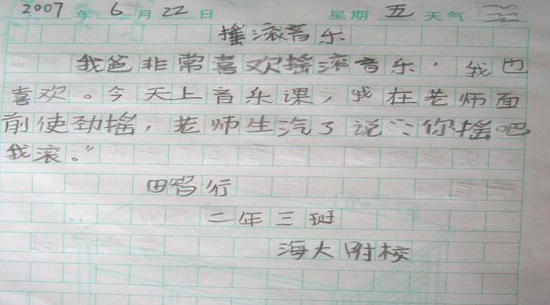 2007年6月22日 星期五天气
摇滚音乐
我爸非常喜欢摇滚音乐，我也
喜欢。今天上音乐课，我在老师面
前使劲摇，老师生汽了说“：你摇吧
我滚。”
田智行
二年三班
海大附校